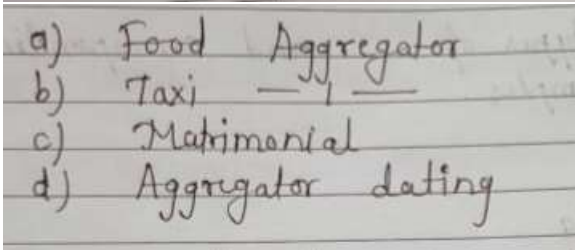 a) Food Aggregator
b) Taxi —"—
c) Matrimonial
d) Aggregator dating